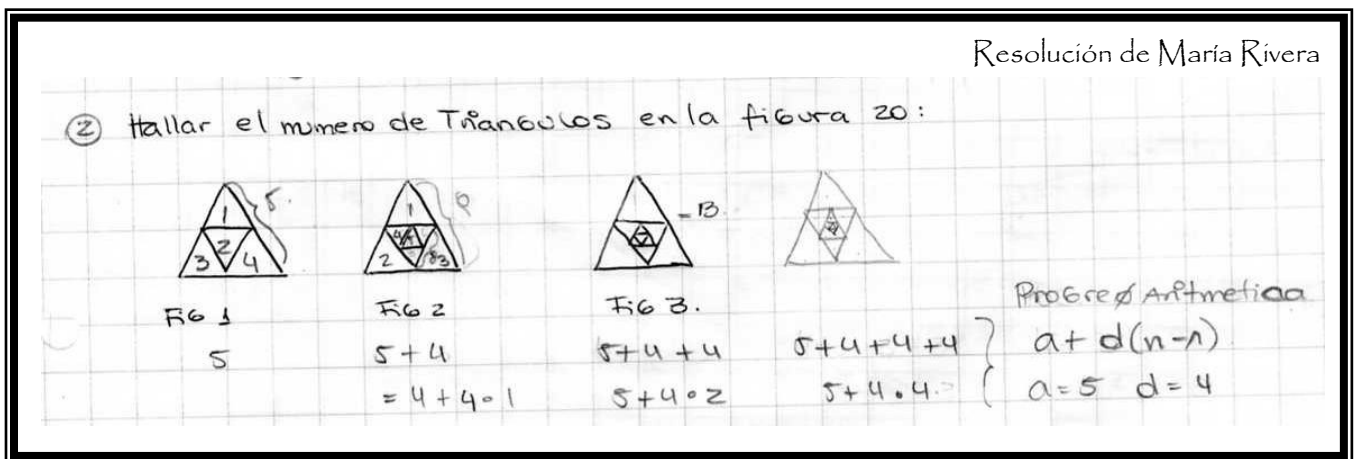 Resolución de María Rivera
② Hallar el numero de Triangulos en la figura 20:
1 5.
2
3 4
1 9
2 3
= 13
Fig 1 Fig 2 Fig 3. Progres Aritmetica
5 5+4 5+4+4 5+4+4+4 a+d(n-1)
= 4+4•1 5+4•2 5+4•4 a=5 d=4